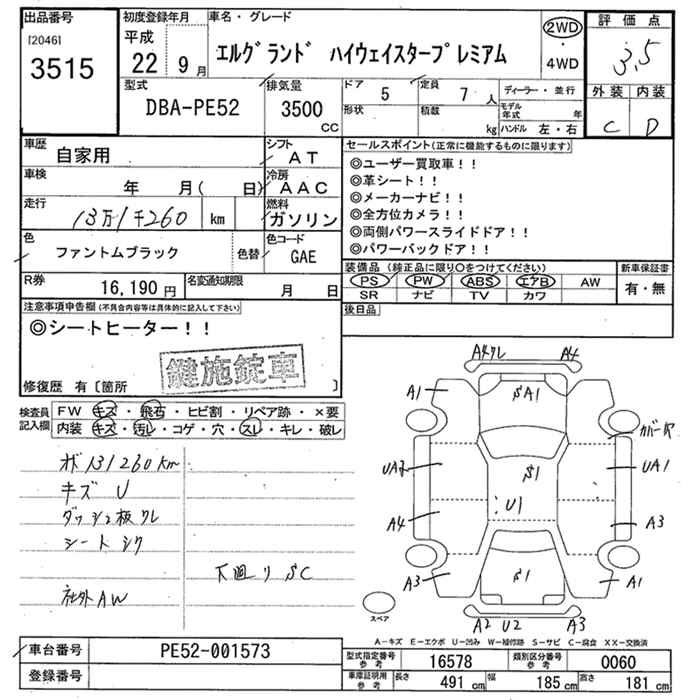 出品番号
[2046]
3515
初度登録年月
平成
22 9月
車名・グレード
エルグランド ハイウェイスタープレミアム
2WD
・
4WD
評価点
3.5
外装 内装
C D
型式
DBA-PE52
排気量
3500
CC
ドア
5
形状
定員
7 人
積載
kg
ディーラー・並行
モデル年式 年
ハンドル 左・右
車歴
自家用
シフト
AT
車検
年 月( 日)
冷房
AAC
走行
13万1千260 km
燃料
ガソリン
色
ファントムブラック
色替
色コード
GAE
R券
16,190円
名変通知期限
月 日
セールスポイント(正常に機能するものに限ります)
◎ユーザー買取車!!
◎革シート!!
◎メーカーナビ!!
◎全方位カメラ!!
◎両側パワースライドドア!!
◎パワーバックドア!!
装備品(純正品に限り○をつけてください)
PS PW ABS エアB AW
SR ナビ TV カワ
新車保証書
有・無
後日品
注意事項申告欄(不具合内容等は具体的に記入して下さい)
◎シートヒーター!!
鍵施錠車
修復歴 有〔箇所 〕
検査員記入欄
FW キズ・飛石・ヒビ割・リペア跡・×要
内装 キズ・汚レ・コゲ・穴・スレ・キレ・破レ
131260km
キズ U
ダッシュ板クレ
シートシワ
下廻り SC
社外AW
A4クレ A4
A1 SA1
カバーヤ
UA2 S1 UA1
U1
A4 A3
A3 S1 A1
A2 U2 A3
スペア
A−キズ E−エクボ U−凹み W−補修跡 S−サビ C−腐食 XX−交換済
車台番号
PE52-001573
登録番号
型式指定番号
参考
16578
類別区分番号
参考
0060
車庫証明用
参考
長さ
491 cm
幅
185 cm
高さ
181 cm